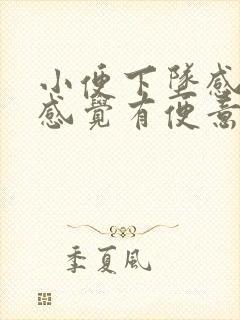 小便下墜感
感覺有便意
季夏風